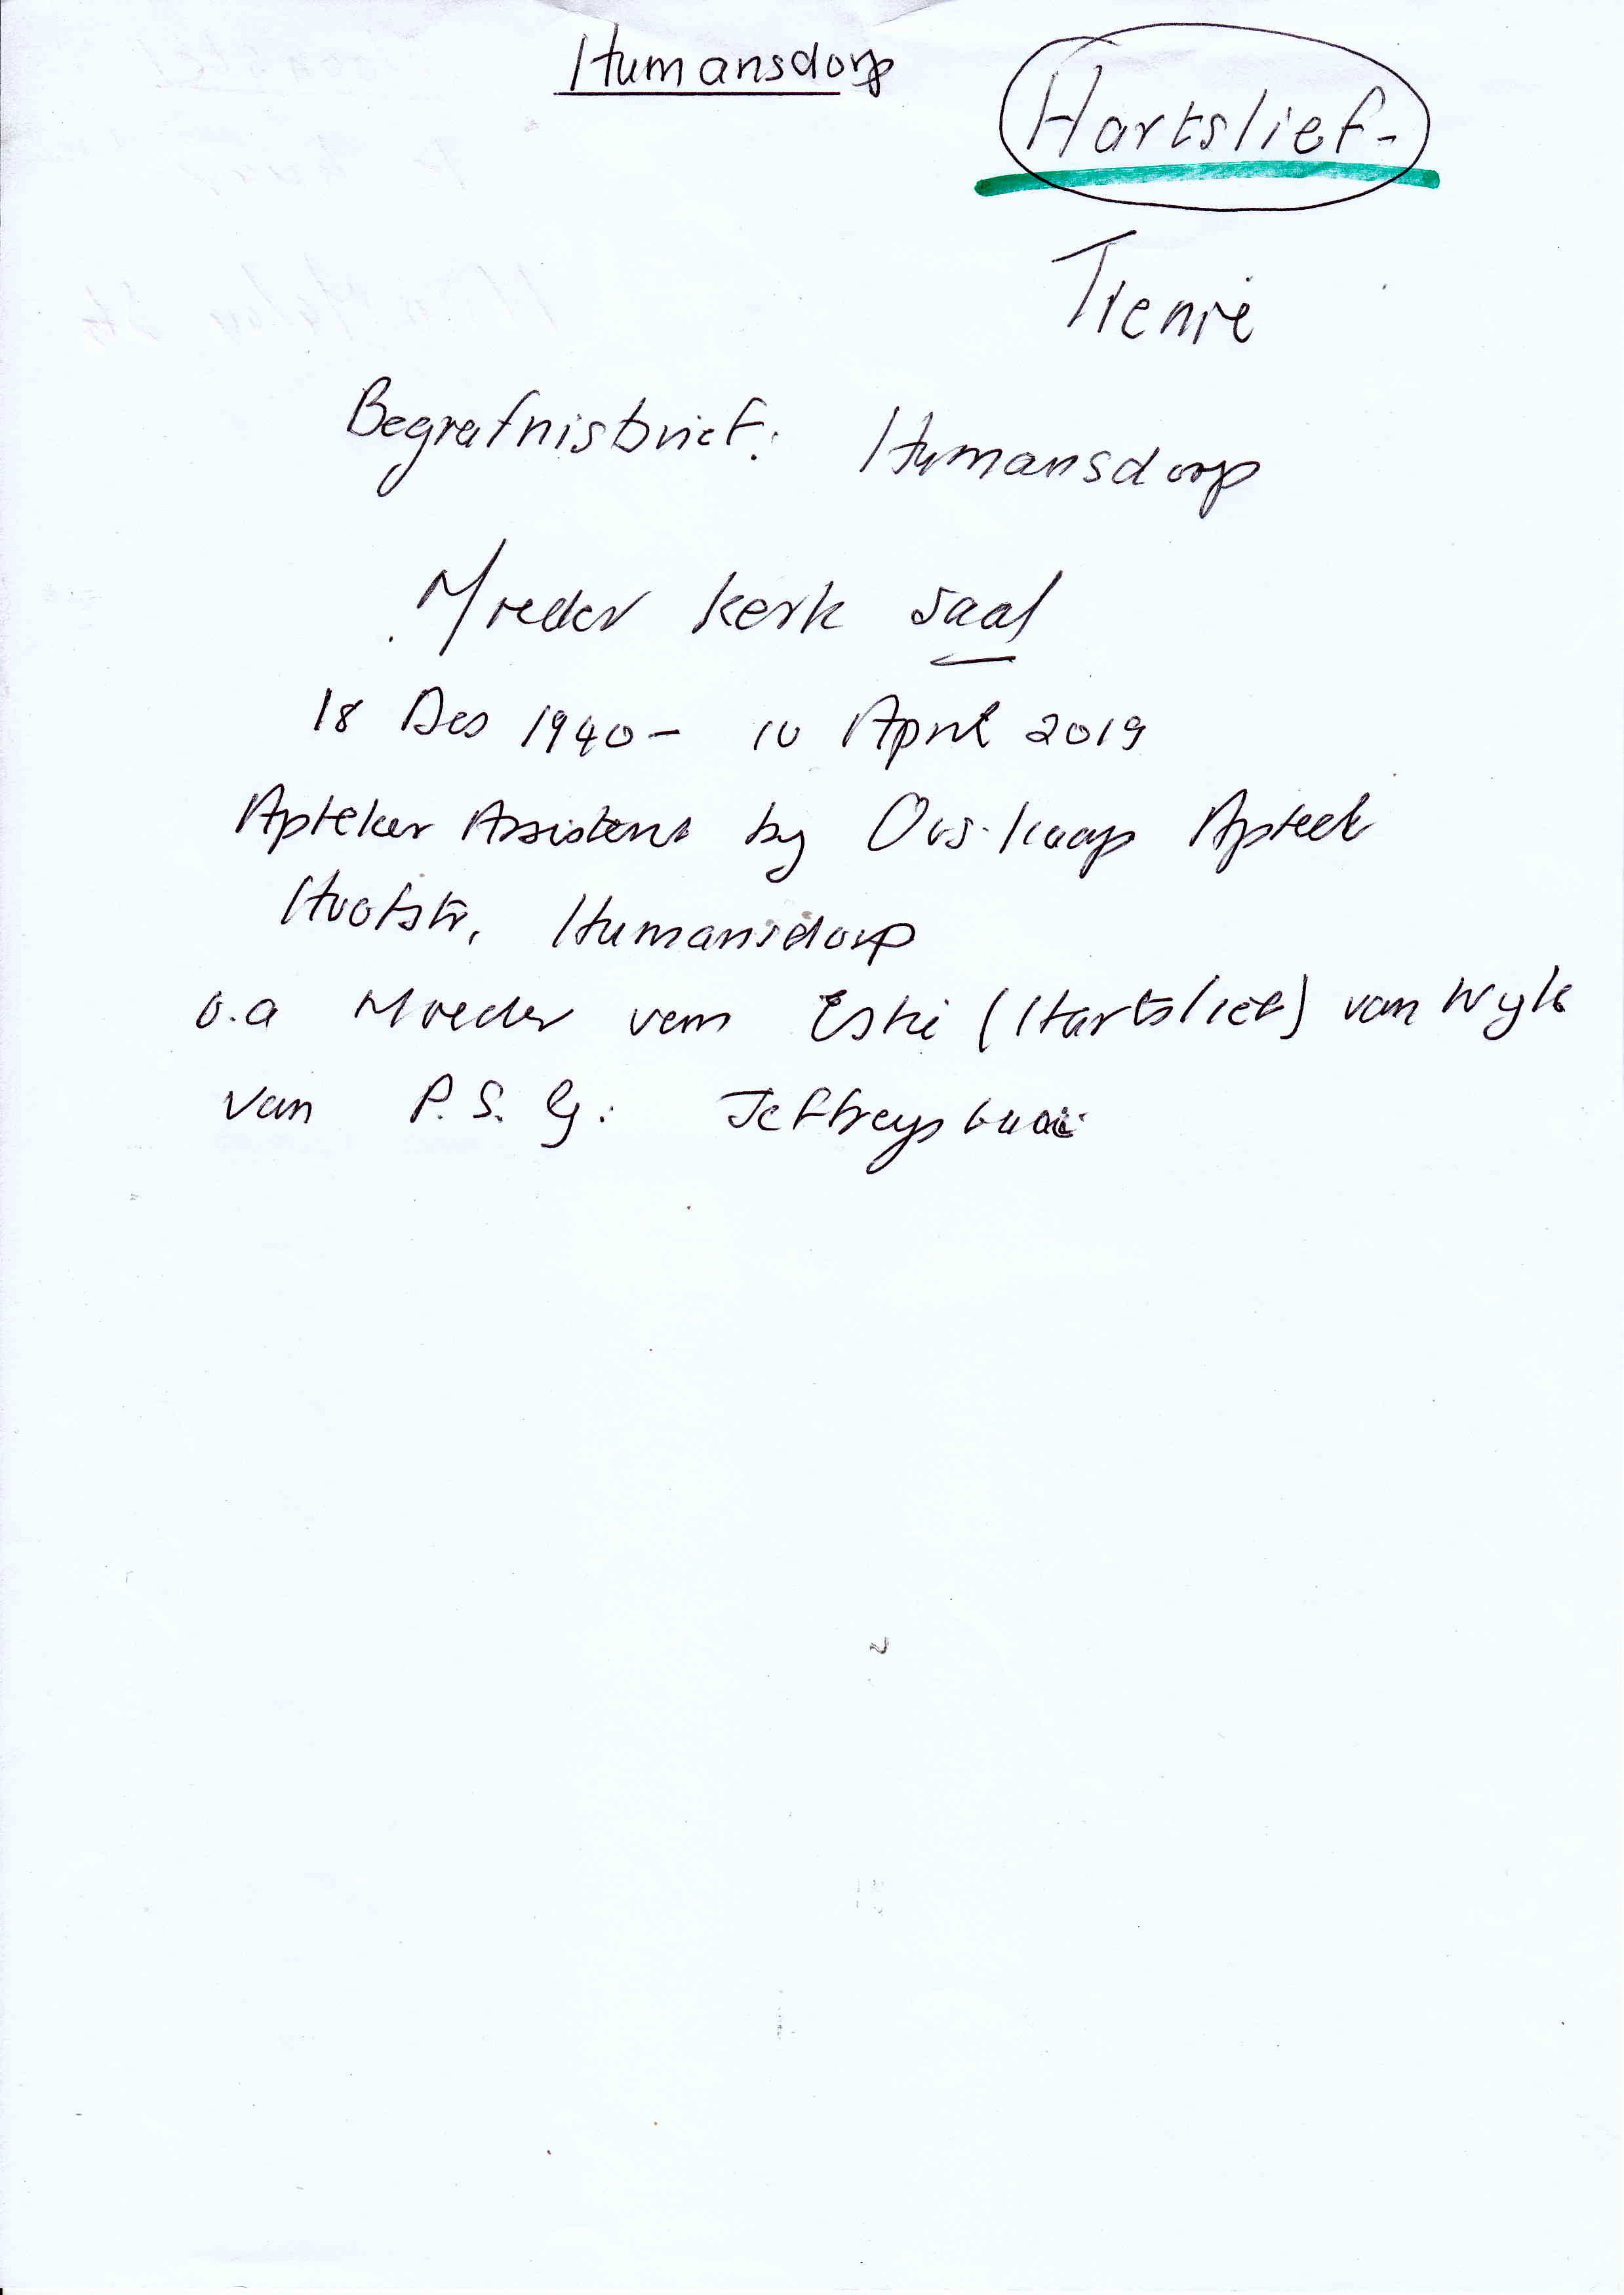 Humansdorp
Hartslief -
Tienie
Begrafnisbrief: Humansdorp
Moeder kerk saal
18 Des 1940 - 10 April 2019
Apteker Assistent by Oos-Kaap Apteek
Hoofstr, Humansdorp
o.a Moeder van (Hartslief) van Wyk
van P.S.G: Jeffreysbaai